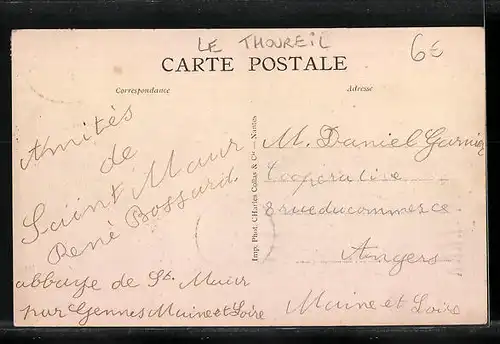 LE THOUREIL
6€
CARTE POSTALE
Correspondance
Adresse
Amitiés
de
Saint Maur
René Bossard.
abbaye de St. Maur
par Gennes Maine et Loire
Imp. Phot. CHarles Collas & Cie — Nantes
M. Daniel Garnier
Coopérative
8 rue du commerce
Angers
Maine et Loire